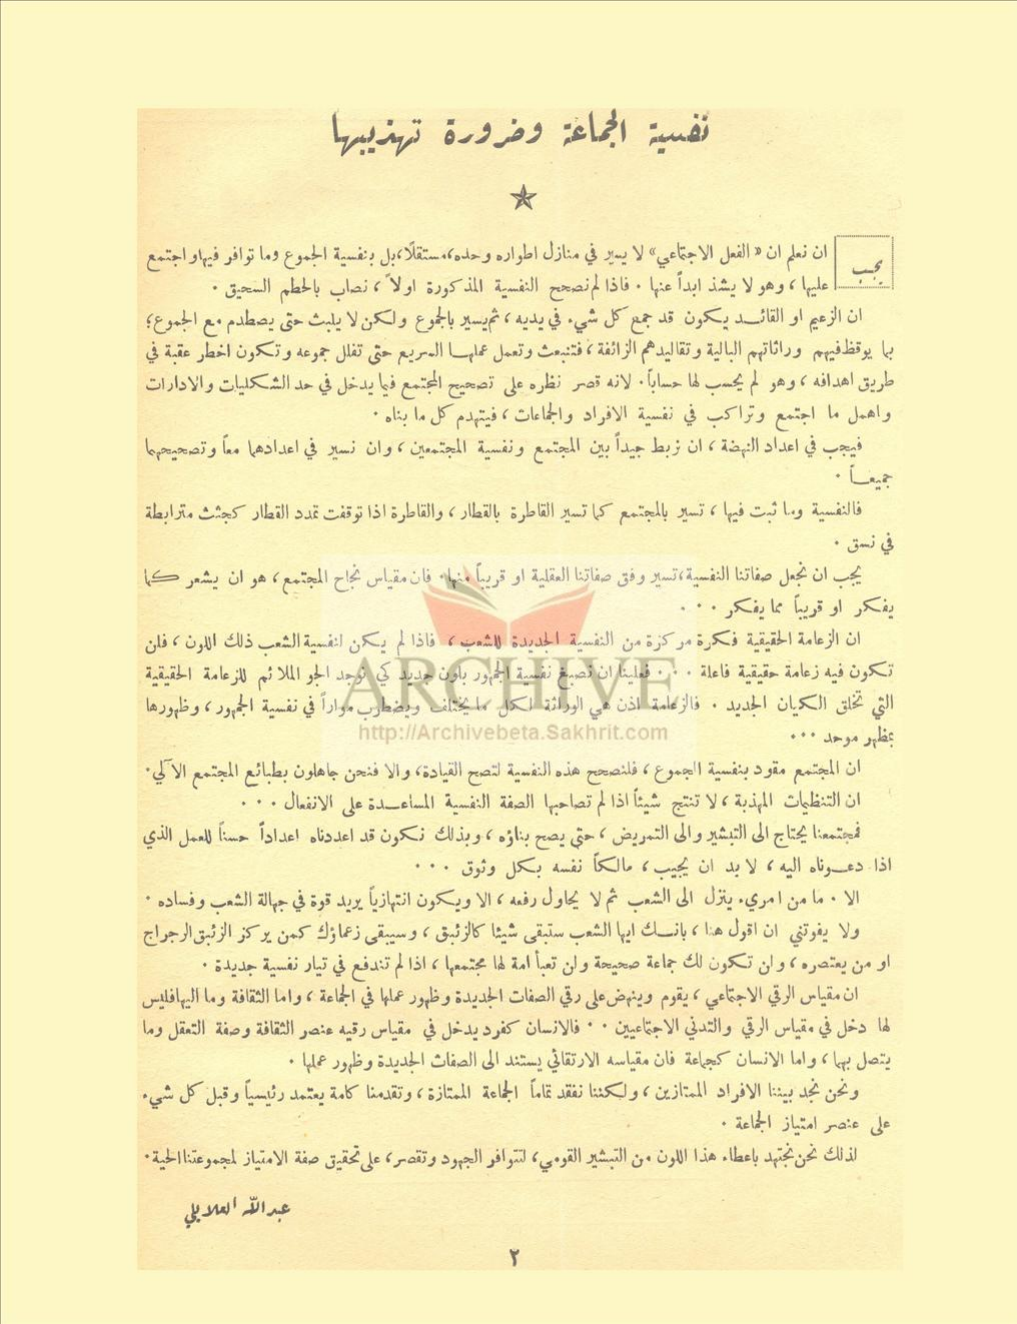 نفسية الجماعة وضرورة تهذيبها
يجب ان نعلم ان «الفعل الاجتماعي» لا يسير في منازل اطواره وحده، مستقلًا، بل بنفسية الجموع وما توافر فيها واجتمع
عليها، وهو لا يشذ ابداً عنها. فاذا لم نصحح النفسية المذكورة اولاً، نصاب بالحطم السحيق.
ان الزعيم او القائد يكون قد جمع كل شيء في يديه، ثم يسير بالجموع ولكن لا يلبث حتى يصطدم مع الجموع؛
بما يوقظ فيهم وراثاتهم البالية وتقاليدهم الزائفة، فتنبعث وتعمل عملها السريع حتى تفلل جموعه وتكون اخطر عقبة في
طريق اهدافه، وهو لم يحسب لها حساباً. لانه قصر نظره على تصحيح المجتمع فيما يدخل في حد الشكليات والادارات
واهمل ما اجتمع وتراكب في نفسية الافراد والجماعات، فيتهدم كل ما بناه.
فيجب في اعداد النهضة، ان نربط جيداً بين المجتمع ونفسية المجتمعين، وان نسير في اعدادهما معاً وتصحيحهما
جميعاً.
فالنفسية وما ثبت فيها، تسير بالمجتمع كما تسير القاطرة بالقطار، والقاطرة اذا توقفت تمدد القطار كجثث مترابطة
في نسق.
يجب ان نجعل صفاتنا النفسية، تسير وفق صفاتنا العقلية او قريباً منها. فان مقياس نجاح المجتمع، هو ان يشعر كما
يفكر او قريباً مما يفكر ...
ان الزعامة الحقيقية فكرة مركزة من النفسية الجديدة للشعب، فاذا لم يكن لنفسية الشعب ذلك اللون، فلن
تكون فيه زعامة حقيقية فاعلة ... فعلينا ان نصبغ نفسية الجمهور بلون جديد كي نوجد الجو الملائم للزعامة الحقيقية
التي تخلق الكيان الجديد. فالزعامة اذن هي الوراثة لكل ما يختلف ويضطرب موّاراً في نفسية الجمهور، وظهورها
بمظهر موحد ...
ARCHIVE
http://Archivebeta.Sakhrit.com
ان المجتمع مقود بنفسية الجموع، فلنصحح هذه النفسية لتصح القيادة، والا فنحن جاهلون بطبائع المجتمع الآلي.
ان التنظيمات المهذبة، لا تنتج شيئاً اذا لم تصاحبها الصفة النفسية المساعدة على الانفعال ...
فمجتمعنا يحتاج الى التبشير والى التمريض، حتى يصح بناؤه، وبذلك نكون قد اعددناه اعداداً حسناً للعمل الذي
اذا دعوناه اليه، لا بد ان يجيب، مالكاً نفسه بكل وثوق ...
الا. ما من امرىء ينزل الى الشعب ثم لا يحاول رفعه، الا ويكون انتهازياً يريد قوة في جهالة الشعب وفساده.
ولا يفوتني ان اقول هنا، بانك ايها الشعب ستبقى شيئا كالزئبق، وسيبقى زعماؤك كمن يركز الزئبق الرجراج
او من يعتصره، ولن تكون لك جماعة صحيحة ولن تعبأ امة لها مجتمعها، اذا لم تندفع في تيار نفسية جديدة.
ان مقياس الرقي الاجتماعي، يقوم وينهض على رقي الصفات الجديدة وظهور عملها في الجماعة، واما الثقافة وما اليها فليس
لها دخل في مقياس الرقي والتدني الاجتماعيين .. فالانسان كفرد يدخل في مقياس رقيه عنصر الثقافة وصفة التعقل وما
يتصل بهما، واما الانسان كجماعة فان مقياسه الارتقائي يستند الى الصفات الجديدة وظهور عملها.
ونحن نجد بيننا الافراد الممتازين، ولكننا نفقد تماماً الجماعة الممتازة، وتقدمنا كامة يعتمد رئيسياً وقبل كل شيء
على عنصر امتياز الجماعة.
لذلك نحن نجتهد باعطاء هذا اللون من التبشير القومي، لتتوافر الجهود وتقصر، على تحقيق صفة الامتياز لمجموعتنا الحية.
عبدالله العلايلي
٢